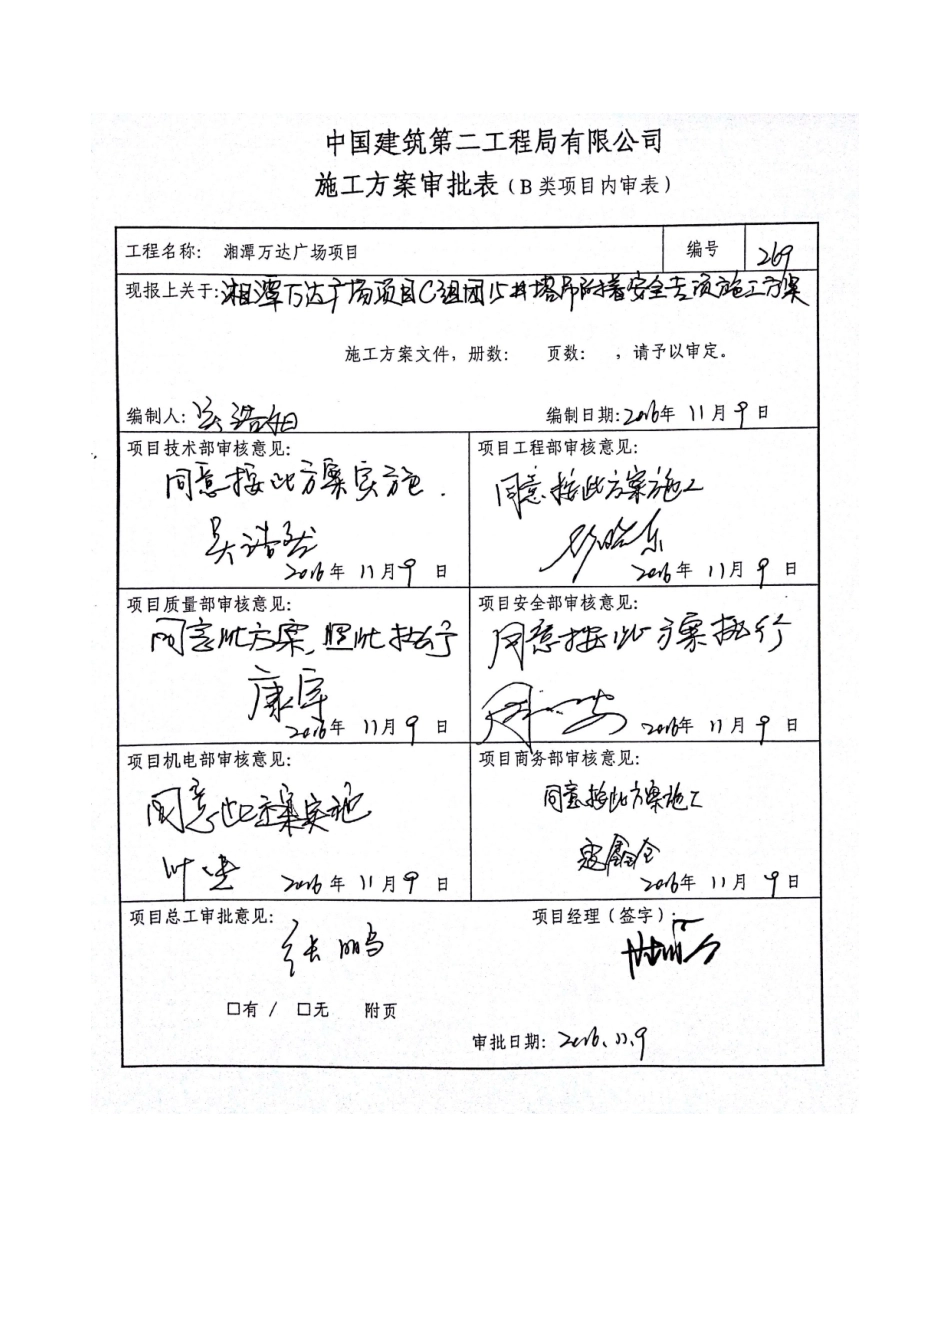 中国建筑第二工程局有限公司
施工方案审批表（B 类项目内审表）
工程名称： 湘潭万达广场项目 编号 269
现报上关于：湘潭万达广场项目C组团15#塔吊附着安全专项施工方案
施工方案文件，册数： 页数： ，请予以审定。
编制人： 编制日期：2016年 11月 9日
项目技术部审核意见：
同意按此方案实施.
吴浩然
2016年 11月 9日
项目工程部审核意见：
同意按此方案施工
2016年 11月 9日
项目质量部审核意见：
同意此方案，照此执行
康军
2016年 11月 9日
项目安全部审核意见：
同意按此方案执行
2016年 11月 9日
项目机电部审核意见：
同意此方案实施
2016年 11月 9日
项目商务部审核意见：
同意按此方案施工
寇鑫全
2016年 11月 9日
项目总工审批意见：
张鹏
□有 / □无 附页
项目经理（签字）：
审批日期：2016.11.9